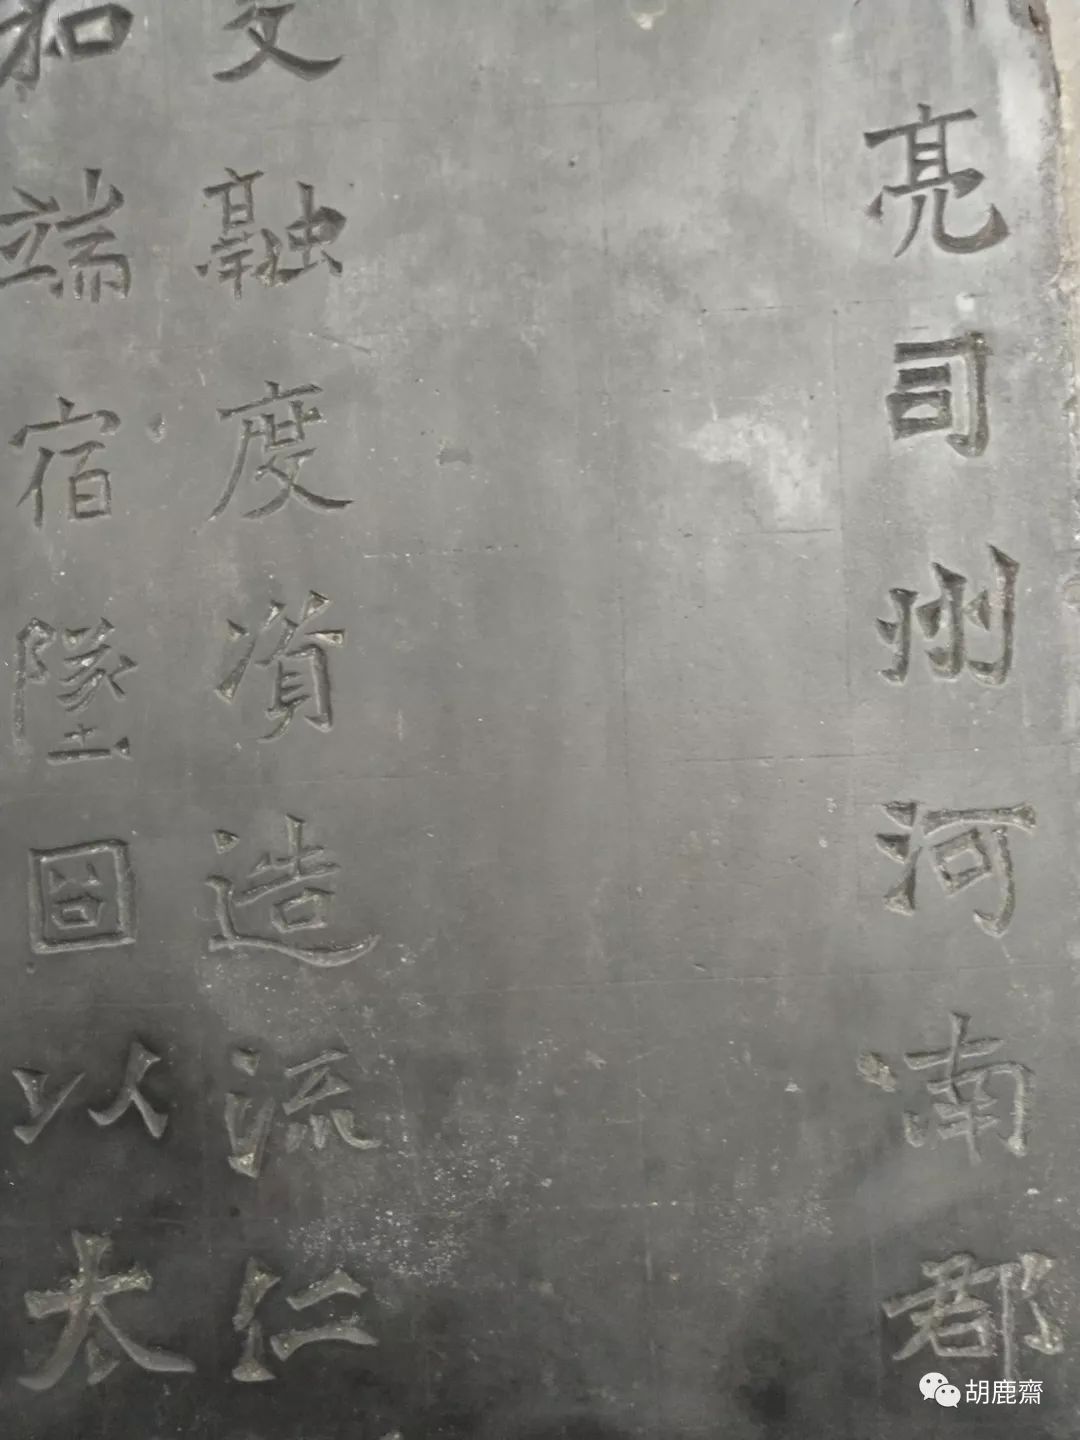 亮司州河南郡
文融度資造流仁
和端宿墜固以太
胡鹿齋